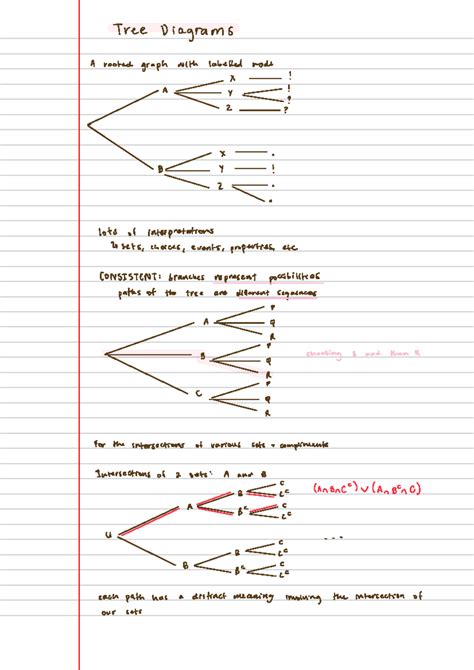 Tree Diagrams
A rooted graph with labelled node
X !
A Y !
?
Z ?
X •
B Y !
Z •
•
lots of interpretations
↳ sets, choices, events, properties, etc
CONSISTENT: branches represent possibilities
paths of the tree are different sequences
P
A Q
R
P
B Q
R choosing B and then R
P
C Q
R
For the intersections of various sets + compliments
Intersections of 2 sets: A and B
C
B C^c (A∩B∩C^c) ∨ (A∩B^c∩C)
A
B^c C
C^c
U
C . . .
B C^c
B
B^c C
C^c
each path has a distinct meaning involving the intersection of
our sets